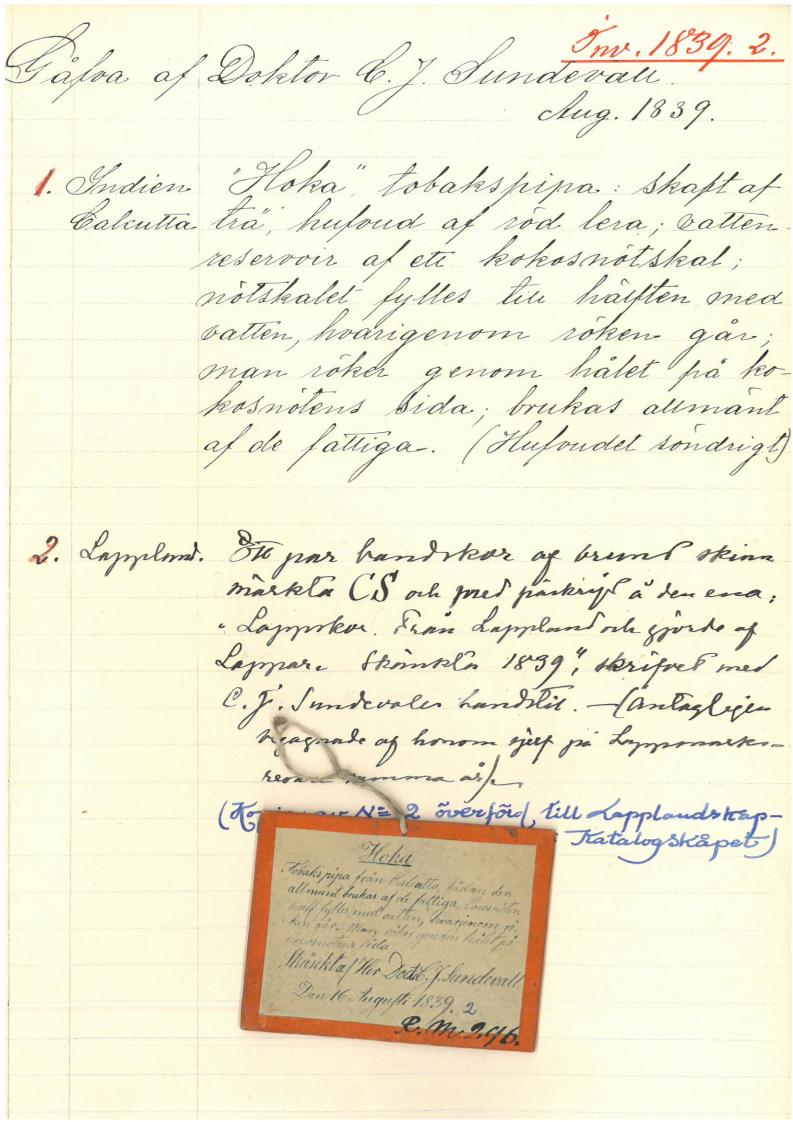 Inv. 1839. 2.
Gåfva af Doktor C. J. Sundevall.
Aug. 1839.
1. Indien "Hoka", tobakspipa: skaft af
Calcutta trä, hufvud af röd lera; vatten-
reservoir af ett kokosnötskal;
nötskalet fylles till hälften med
vatten, hvarigenom röken går;
man röker genom hålet på ko-
kosnötens sida; brukas allmänt
af de fattiga. (Hufvudet söndrigt)
2. Lappland. Ett par bandskor af brunt skinn
märkta CS och med påskrift å den ena:
"Lappskor. Från Lappland och gjorde af
Lappar. Skänkta 1839", skrifvet med
C. J. Sundevalls handstil. — (Antagligen
begagnade af honom sjelf på Lappmarks-
resan samma år).
(Kopia av N= 2 överförd till Lapplandskap-
Katalogskåpet)
Hoka
Tobakspipa från Calcutta, sådan den
allmänt brukas af de fattiga, Cocosnöten
half fylles med vatten, hvarigenom rö-
ken går. Man röker genom hålet på
cocosnötens sida
Skänkt af Herr Doct. C. J. Sundevall
Den 16 Augusti 1839. 2
R. M. 296.